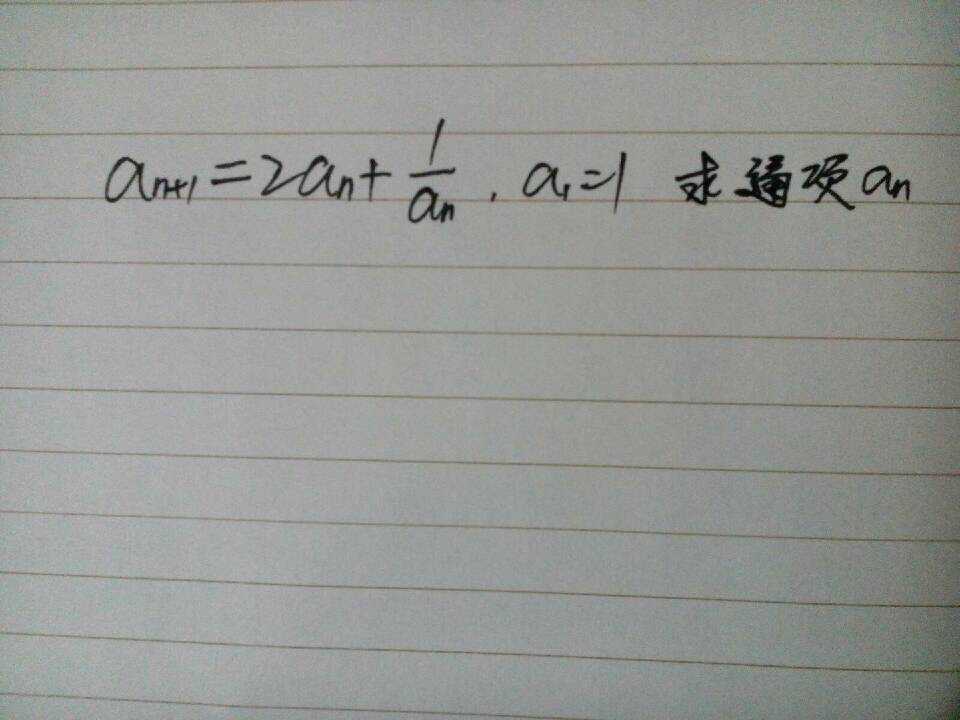 aₙ₊₁=2aₙ+1/aₙ, a₁=1 求通项aₙ